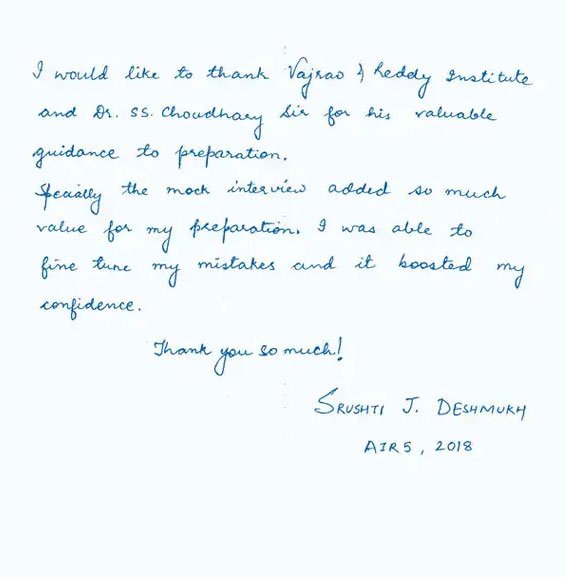 I would like to thank Vajrao & Reddy Institute
and Dr. SS. Choudhary Sir for his valuable
guidance to preparation.
Specially the mock interview added so much
value for my preparation. I was able to
fine tune my mistakes and it boosted my
confidence.
Thank you so much!
SRUSHTI J. DESHMUKH
AIR 5, 2018